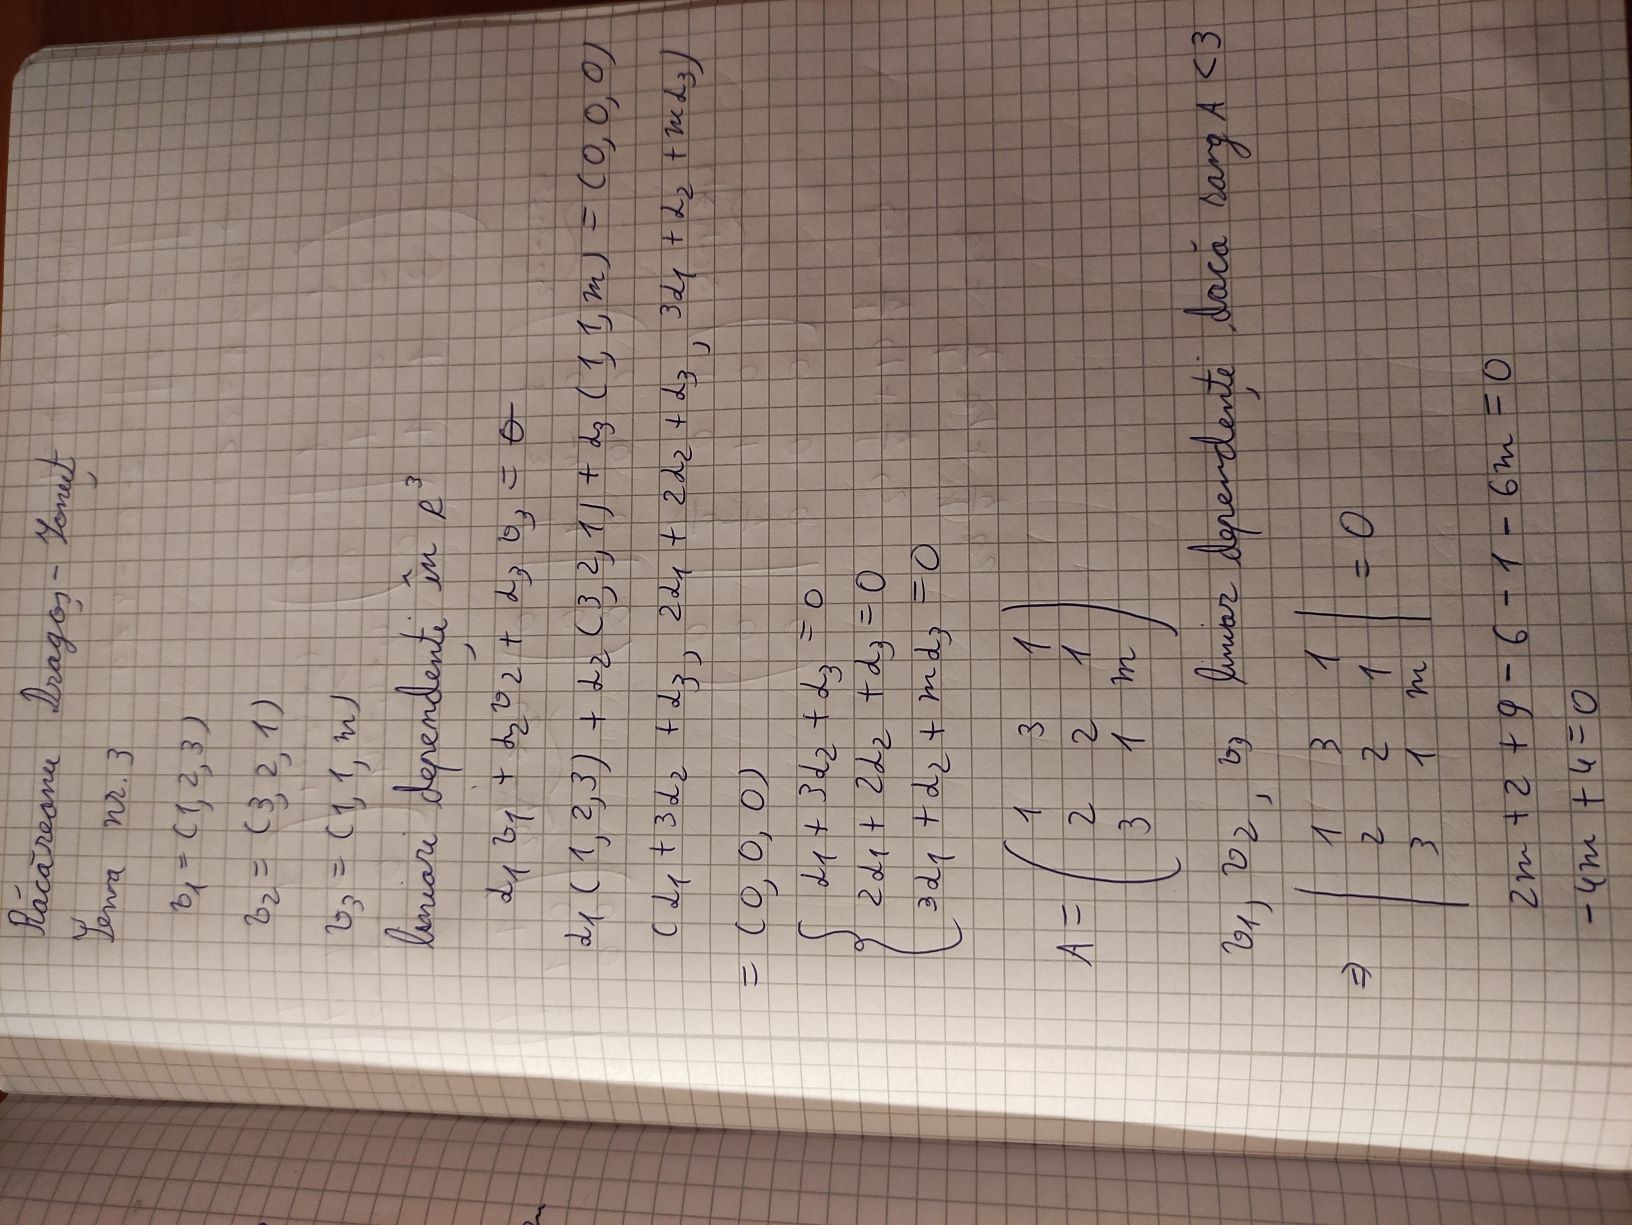 Răcăreanu Dragoș-Ionuț
Tema nr. 3
v₁ = (1, 2, 3)
v₂ = (3, 2, 1)
v₃ = (1, 1, m)
liniari dependenți în R³
α₁ v₁ + α₂ v₂ + α₃ v₃ = 0
α₁ (1, 2, 3) + α₂ (3, 2, 1) + α₃ (1, 1, m) = (0, 0, 0)
(α₁ + 3α₂ + α₃, 2α₁ + 2α₂ + α₃, 3α₁ + α₂ + mα₃)
= (0, 0, 0)
α₁ + 3α₂ + α₃ = 0
2α₁ + 2α₂ + α₃ = 0
3α₁ + α₂ + mα₃ = 0
1 3 1
A = 2 2 1
3 1 m
v₁, v₂, v₃ liniar dependenți dacă rang A < 3
1 3 1
⇒ 2 2 1 = 0
3 1 m
2m + 2 + 9 - 6 - 1 - 6m = 0
-4m + 4 = 0